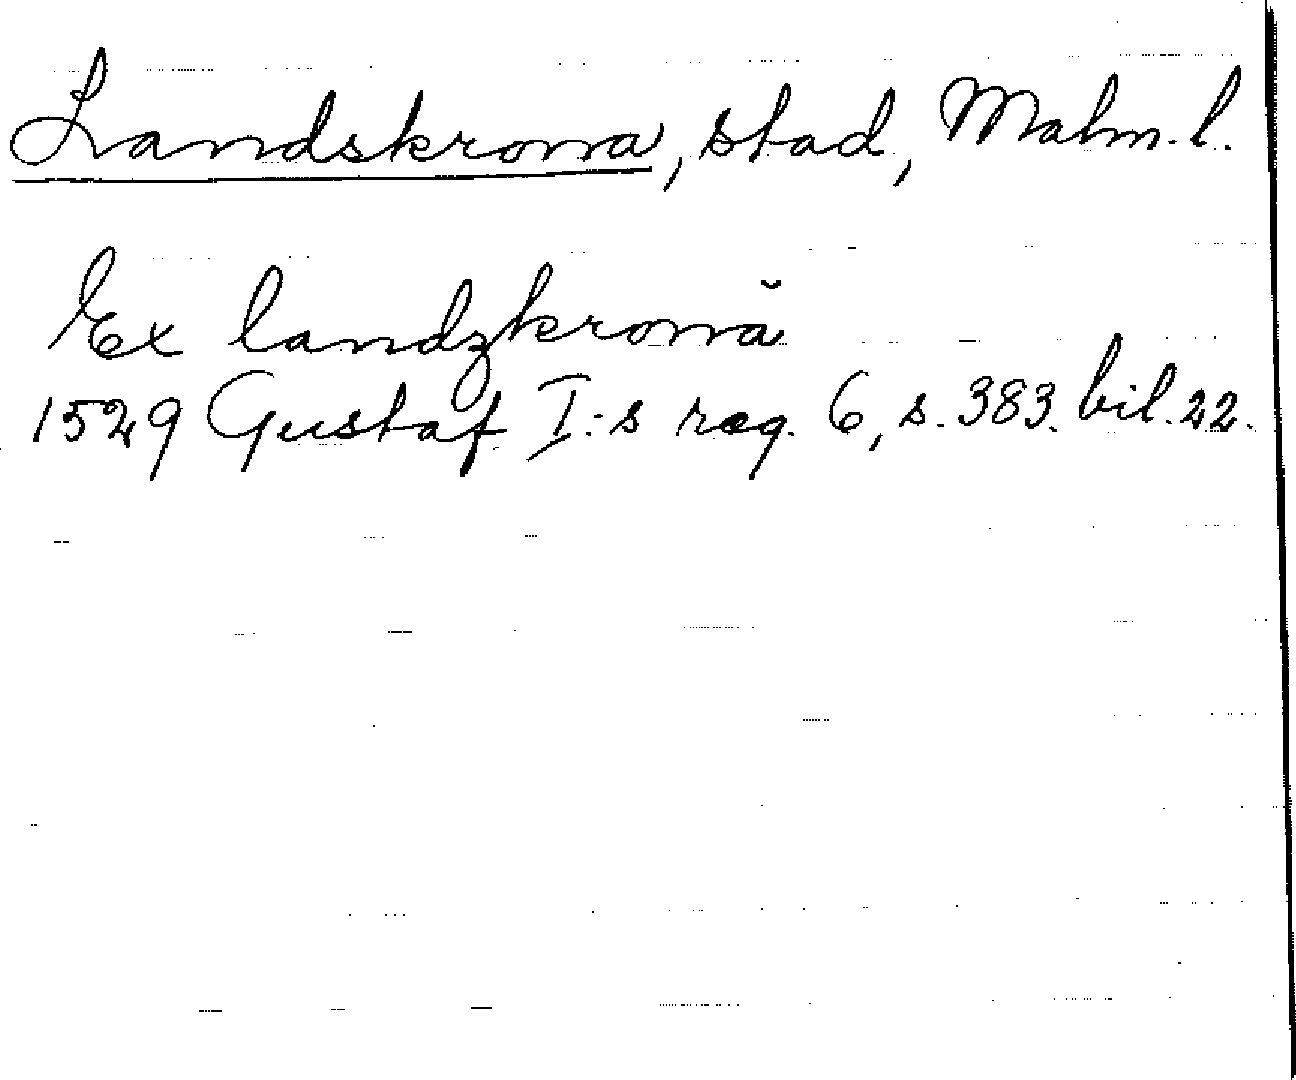 Landskrona, stad, Malm. l.
Ex landzkronă
1529 Gustaf I:s reg. 6, s. 383. bil. 22.